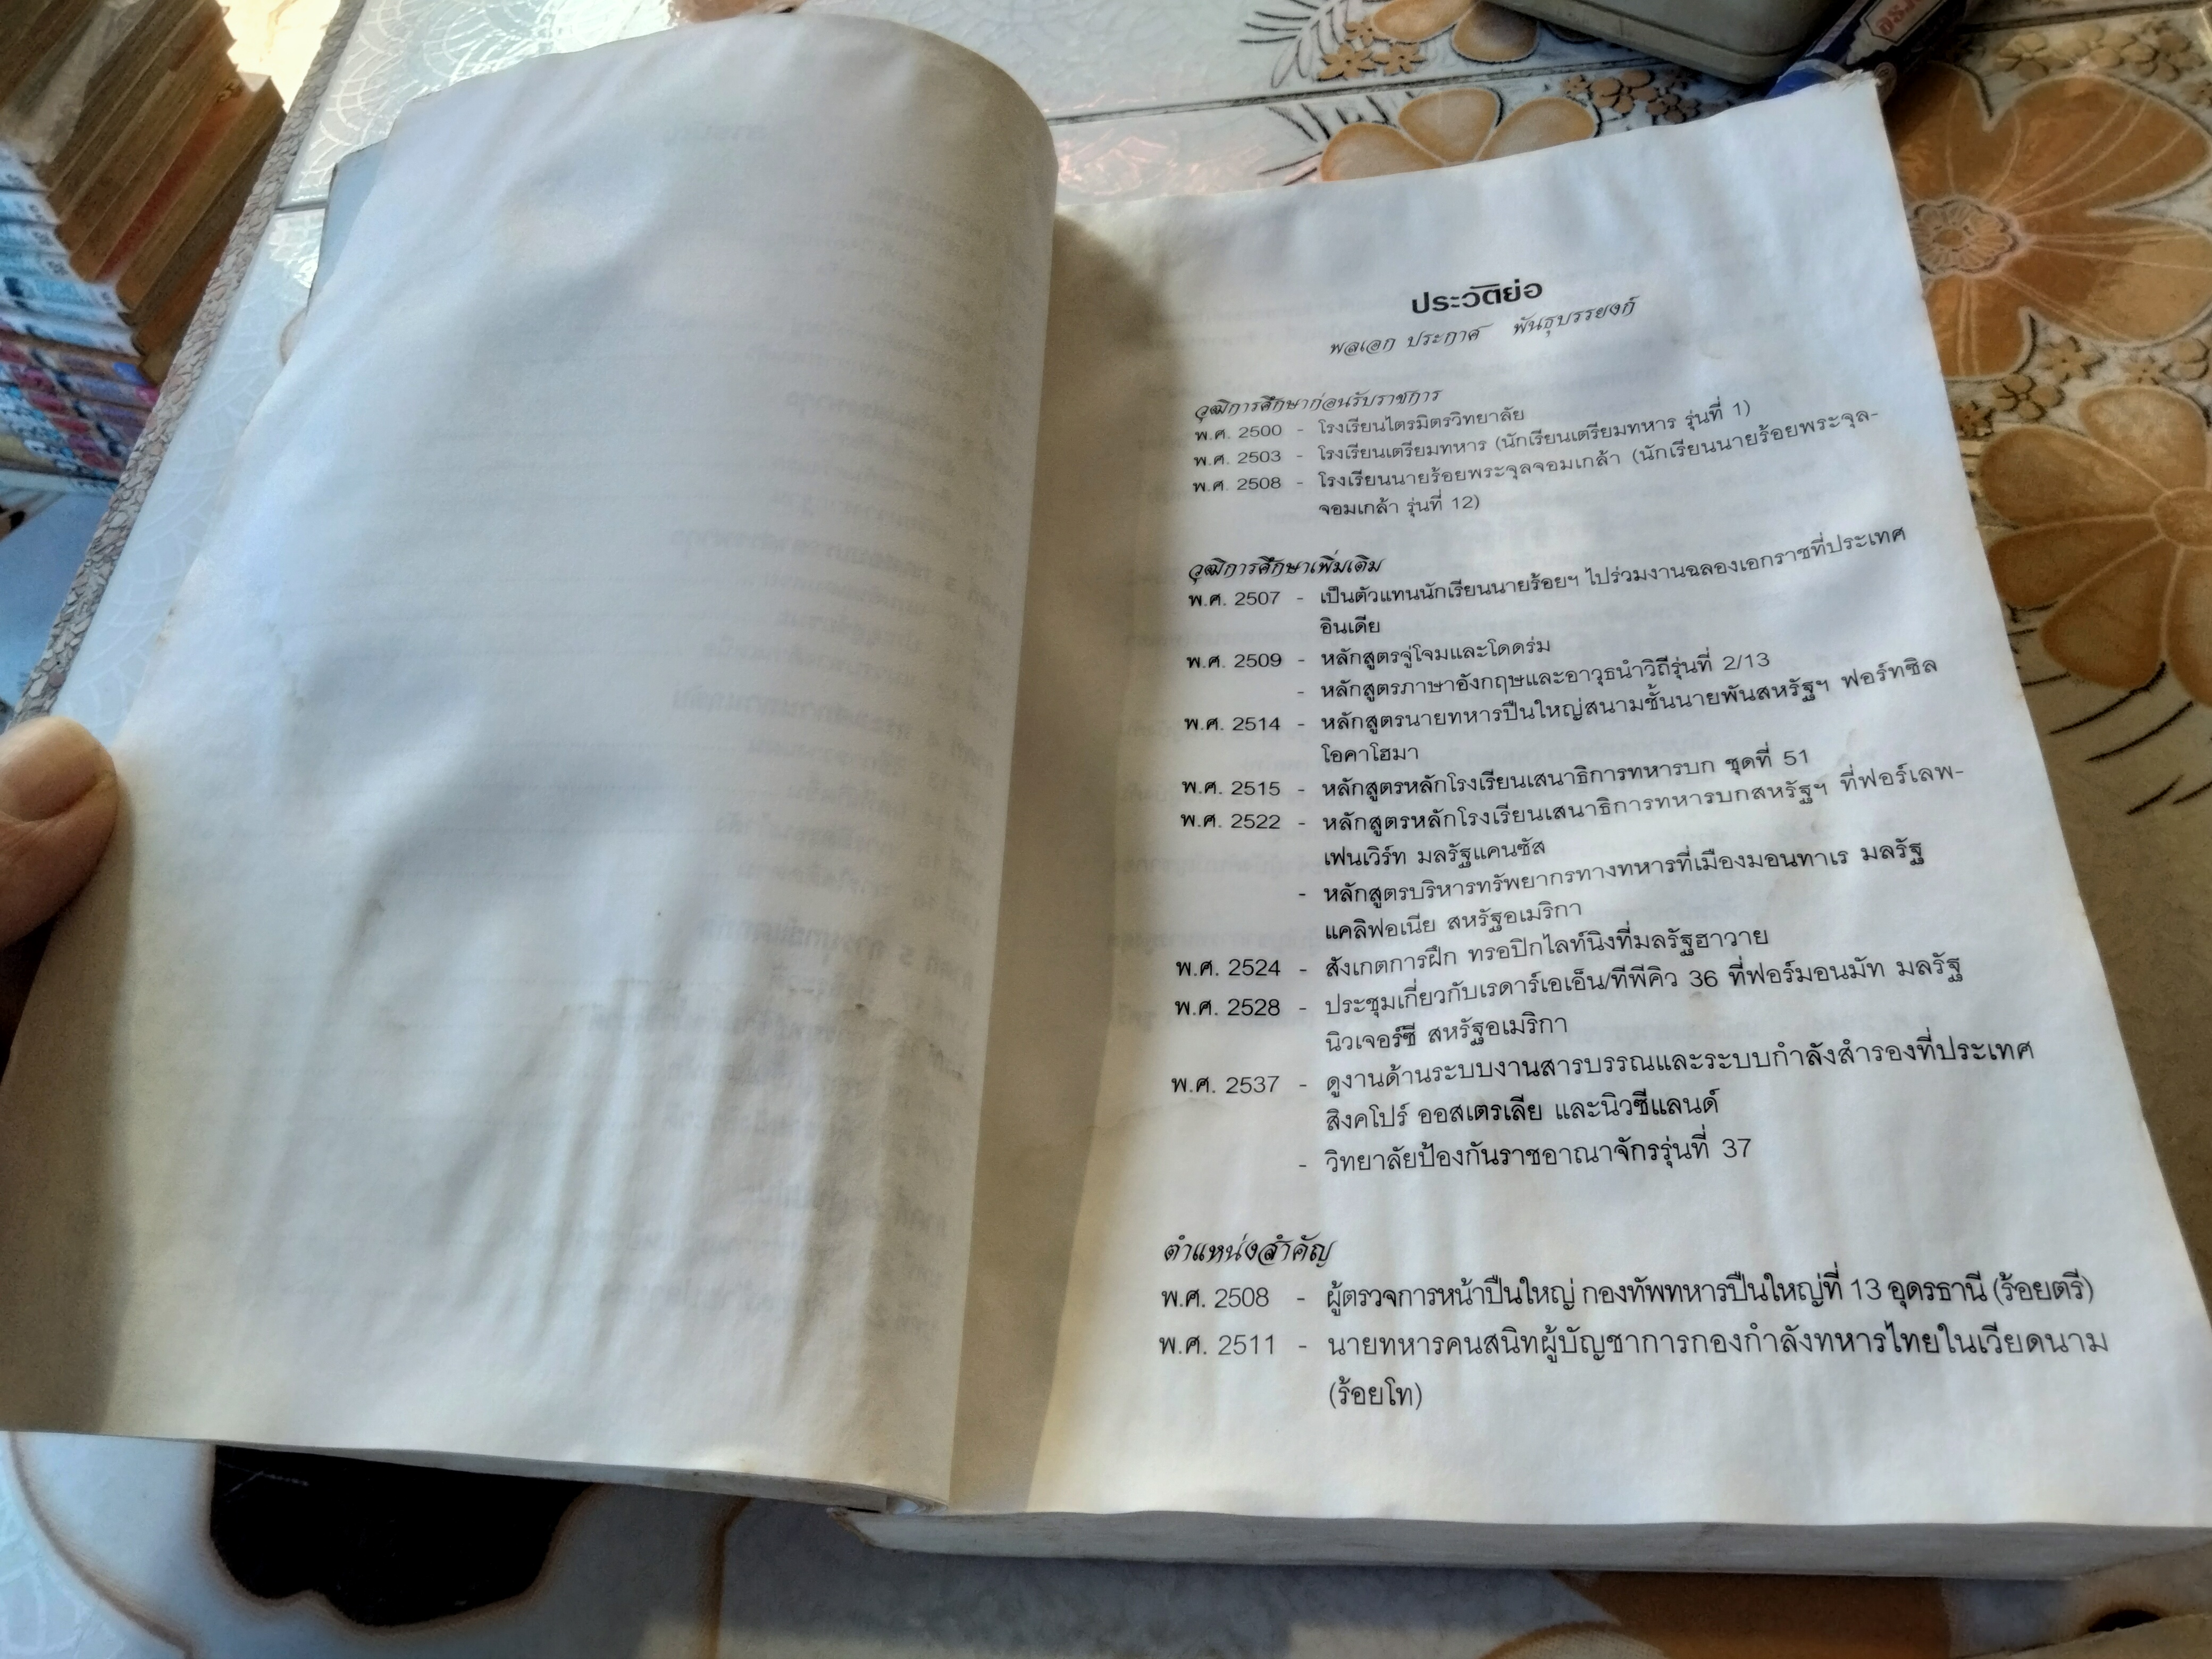 ประวัติย่อ
พลเอก ประกาศ พันธุบรรยงก์
วุฒิการศึกษาก่อนรับราชการ
พ.ศ. 2500 - โรงเรียนไตรมิตรวิทยาลัย
พ.ศ. 2503 - โรงเรียนเตรียมทหาร (นักเรียนเตรียมทหาร รุ่นที่ 1)
พ.ศ. 2508 - โรงเรียนนายร้อยพระจุลจอมเกล้า (นักเรียนนายร้อยพระจุล-
จอมเกล้า รุ่นที่ 12)
วุฒิการศึกษาเพิ่มเติม
พ.ศ. 2507 - เป็นตัวแทนนักเรียนนายร้อยฯ ไปร่วมงานฉลองเอกราชที่ประเทศ
อินเดีย
พ.ศ. 2509 - หลักสูตรจู่โจมและโดดร่ม
- หลักสูตรภาษาอังกฤษและอาวุธนำวิถีรุ่นที่ 2/13
พ.ศ. 2514 - หลักสูตรนายทหารปืนใหญ่สนามชั้นนายพันสหรัฐฯ ฟอร์ทซิล
โอคาโฮมา
พ.ศ. 2515 - หลักสูตรหลักโรงเรียนเสนาธิการทหารบก ชุดที่ 51
พ.ศ. 2522 - หลักสูตรหลักโรงเรียนเสนาธิการทหารบกสหรัฐฯ ที่ฟอร์เลพ-
เฟนเวิร์ท มลรัฐแคนซัส
- หลักสูตรบริหารทรัพยากรทางทหารที่เมืองมอนทาเร มลรัฐ
แคลิฟอเนีย สหรัฐอเมริกา
พ.ศ. 2524 - สังเกตการฝึก ทรอปิกไลท์นิงที่มลรัฐฮาวาย
พ.ศ. 2528 - ประชุมเกี่ยวกับเรดาร์เอเอ็น/ทีพีคิว 36 ที่ฟอร์มอนมัท มลรัฐ
นิวเจอร์ซี สหรัฐอเมริกา
พ.ศ. 2537 - ดูงานด้านระบบงานสารบรรณและระบบกำลังสำรองที่ประเทศ
สิงคโปร์ ออสเตรเลีย และนิวซีแลนด์
- วิทยาลัยป้องกันราชอาณาจักรรุ่นที่ 37
ตำแหน่งสำคัญ
พ.ศ. 2508 - ผู้ตรวจการหน้าปืนใหญ่ กองทัพทหารปืนใหญ่ที่ 13 อุดรธานี (ร้อยตรี)
พ.ศ. 2511 - นายทหารคนสนิทผู้บัญชาการกองกำลังทหารไทยในเวียดนาม
(ร้อยโท)